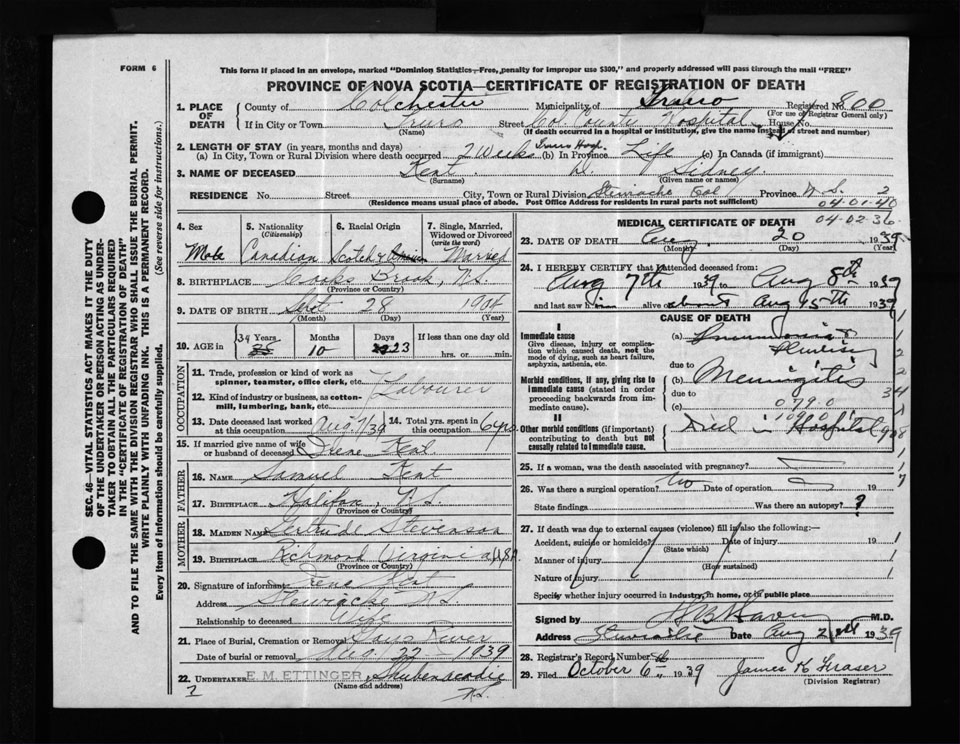 FORM 6
This form if placed in an envelope, marked "Dominion Statistics—Free, penalty for improper use $300," and properly addressed will pass through the mail "FREE"
PROVINCE OF NOVA SCOTIA—CERTIFICATE OF REGISTRATION OF DEATH
1. PLACE OF DEATH
County of Colchester Municipality of Truro Registered No. 800
(For use of Registrar General only)
If in City or Town Truro Street Col. County Hospital House No.
(Name) (If death occurred in a hospital or institution, give the name instead of street and number)
2. LENGTH OF STAY (in years, months and days)
(a) In City, Town or Rural Division where death occurred 2 Weeks Truro Hosp. (b) In Province Life (c) In Canada (if immigrant)
3. NAME OF DECEASED Kent D. Sidney
(Surname) (Given name or names)
RESIDENCE No. Street City, Town or Rural Division Stewiacke Col Province N.S. 2
(Residence means usual place of abode. Post Office Address for residents in rural parts not sufficient) 04-01-40
04-02-36
4. Sex Male
5. Nationality (Citizenship) Canadian
6. Racial Origin Scotch &
7. Single, Married, Widowed or Divorced (write the word) Married
8. BIRTHPLACE Cooks Brook, N.S.
(Province or Country)
9. DATE OF BIRTH Sept 28 1904
(Month) (Day) (Year)
10. AGE in 34 Years 10 Months 23 Days If less than one day old
hrs. or min.
OCCUPATION
11. Trade, profession or kind of work as spinner, teamster, office clerk, etc. Labourer
12. Kind of industry or business, as cotton-mill, lumbering, bank, etc.
13. Date deceased last worked at this occupation Aug 7/39
14. Total yrs. spent in this occupation 6 yrs.
15. If married give name of wife or husband of deceased Irene Kent
FATHER
16. NAME Samuel Kent
17. BIRTHPLACE Halifax, N.S.
(Province or Country)
MOTHER
18. MAIDEN NAME Gertrude Stevenson
19. BIRTHPLACE Richmond Virginia U.S.A.
(Province or Country)
20. Signature of informant Irene Kent
Address Stewiacke N.S.
Relationship to deceased Wife
21. Place of Burial, Cremation or Removal Hays River
Date of burial or removal Aug. 22 - 1939
22. UNDERTAKER E. M. ETTINGER, Shubenacadie
(Name and address) N.S.
MEDICAL CERTIFICATE OF DEATH
23. DATE OF DEATH Aug 20 1939
(Month) (Day) (Year)
24. I HEREBY CERTIFY that I attended deceased from:
Aug 7th 1939 to Aug 8th 1939
and last saw him alive on about Aug 15th 1939
CAUSE OF DEATH
I
Immediate cause
Give disease, injury or complication which caused death, not the mode of dying, such as heart failure, asphyxia, asthenia, etc.
(a) Pneumonia
due to
Morbid conditions, if any, giving rise to immediate cause (stated in order proceeding backwards from immediate cause).
(b) Meningitis
due to
(c) 079.0
II
Other morbid conditions (if important) contributing to death but not causally related to immediate cause.
Died in Hospital
25. If a woman, was the death associated with pregnancy?
26. Was there a surgical operation? No Date of operation 19
State findings Was there an autopsy? ?
27. If death was due to external causes (violence) fill in also the following:—
Accident, suicide or homicide? Date of injury 19
(State which)
Manner of injury
(How sustained)
Nature of injury
Specify whether injury occurred in industry, in home, or in public place
Signed by M.D.
Address Stewiacke Date Aug 21st 1939
28. Registrar's Record Number
29. Filed October 6th 1939 James K Fraser
(Division Registrar)
SEC. 46—VITAL STATISTICS ACT MAKES IT THE DUTY
OF THE UNDERTAKER OR PERSON ACTING AS UNDER-
TAKER TO OBTAIN ALL THE PARTICULARS REQUIRED
IN THE "CERTIFICATE OF REGISTRATION OF DEATH"
AND TO FILE THE SAME WITH THE DIVISION REGISTRAR WHO SHALL ISSUE THE BURIAL PERMIT.
WRITE PLAINLY WITH UNFADING INK. THIS IS A PERMANENT RECORD.
Every item of information should be carefully supplied. (See reverse side for instructions.)